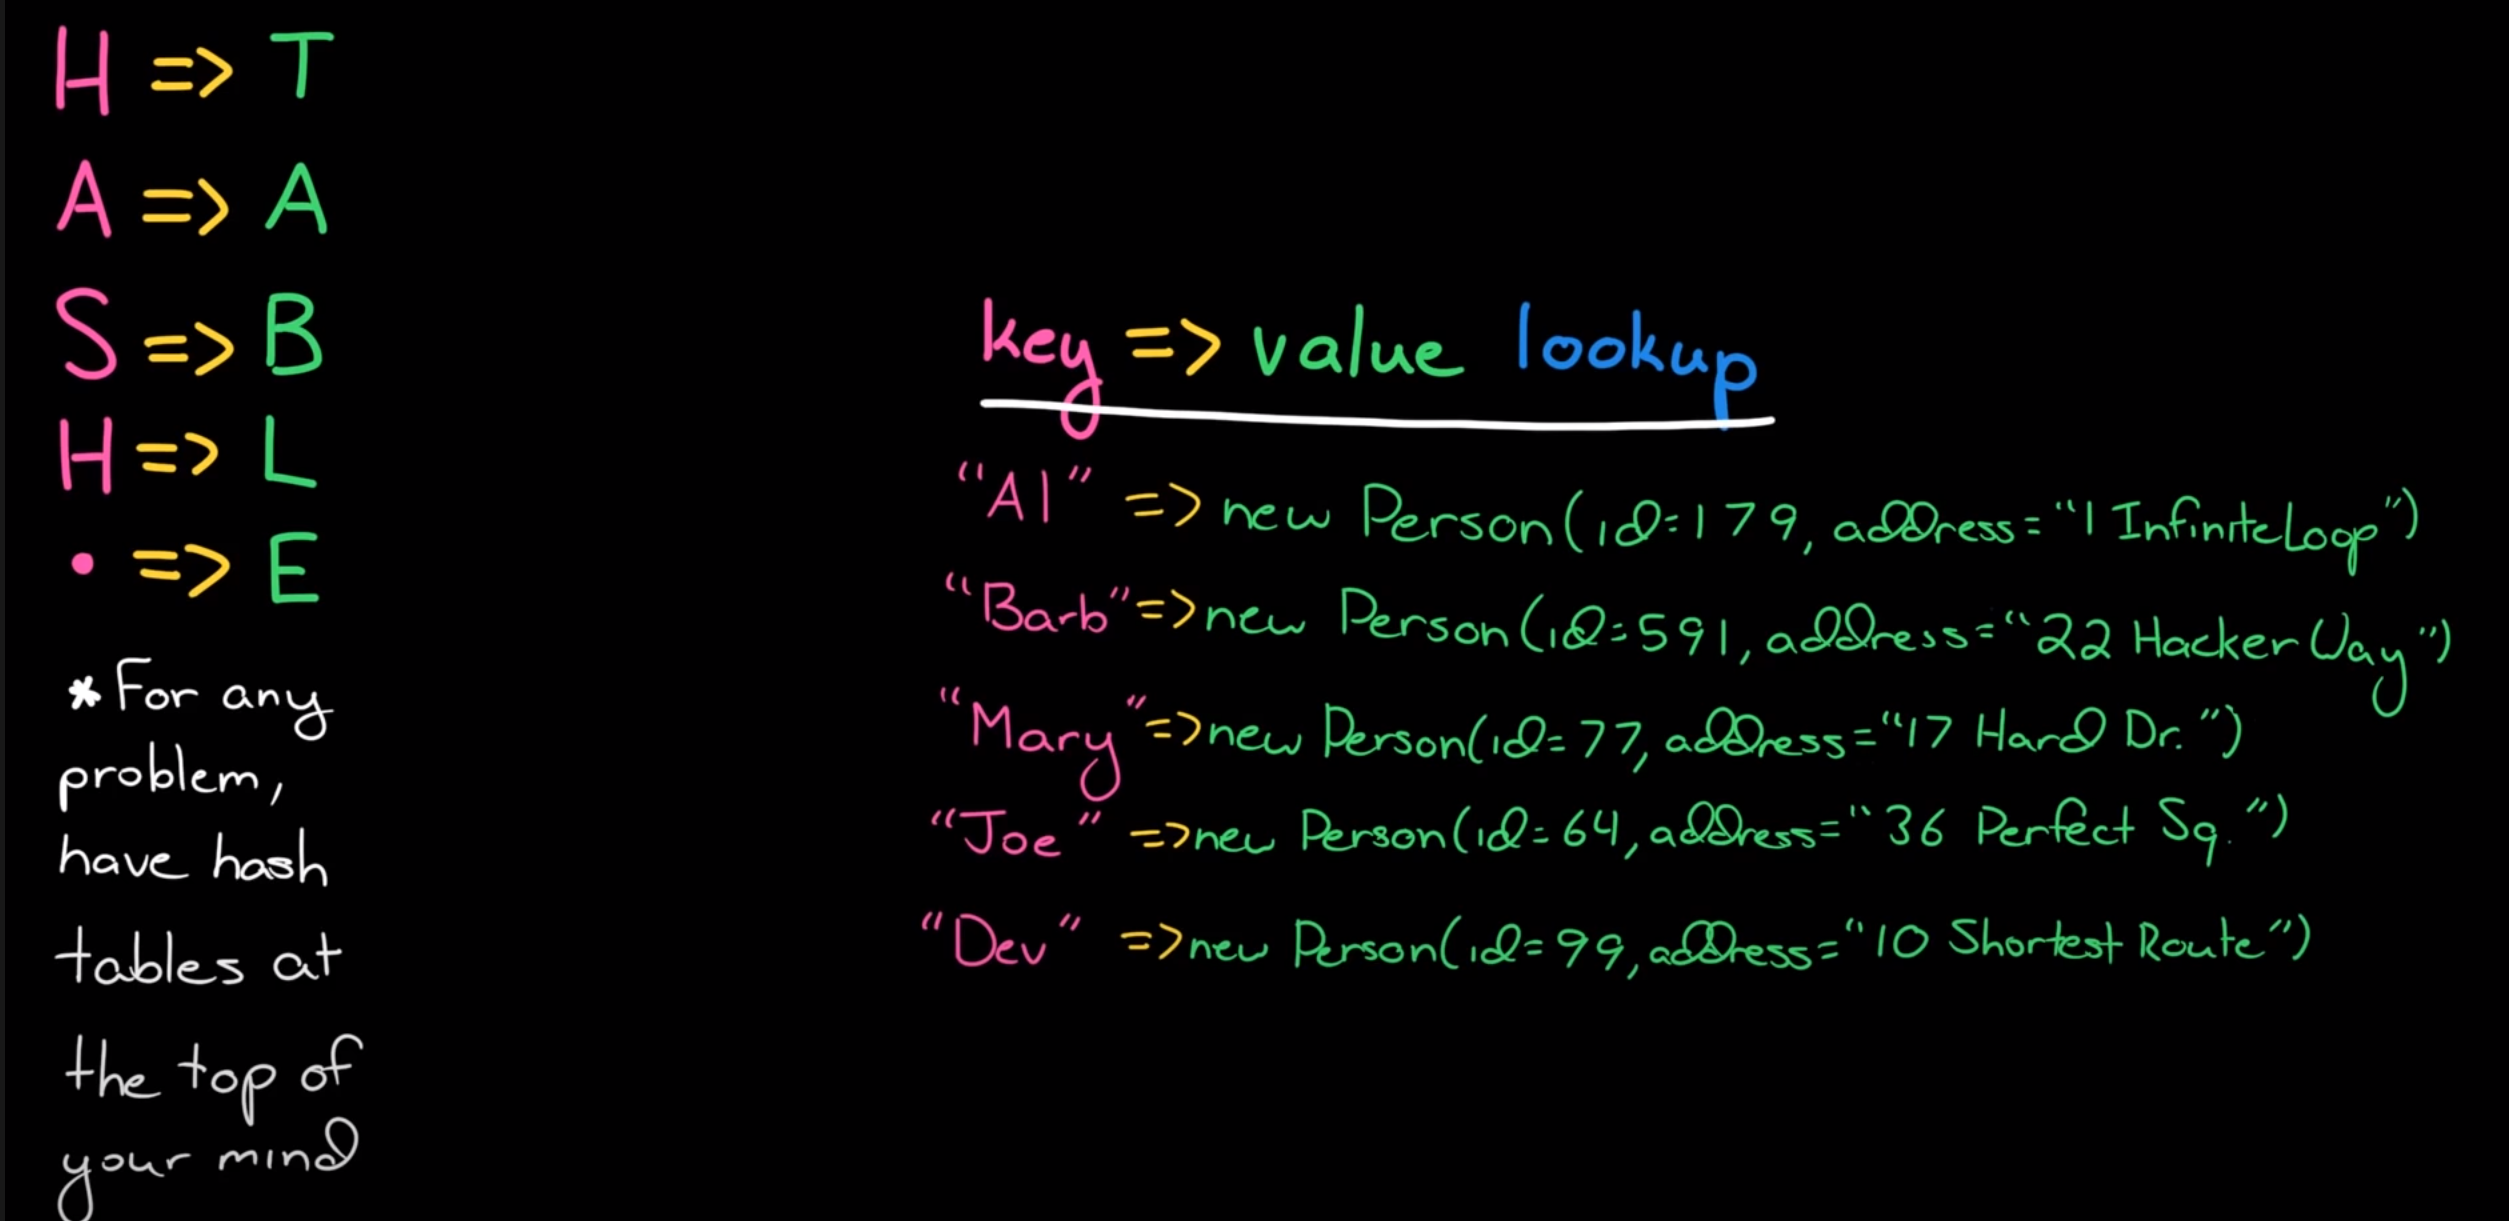 H => T
A => A
S => B
H => L
• => E
*For any
problem,
have hash
tables at
the top of
your mind
key => value lookup
"Al" => new Person(id=179, address="1 Infinite Loop")
"Barb" => new Person(id=591, address="22 Hacker Way")
"Mary" => new Person(id=77, address="17 Hard Dr.")
"Joe" => new Person(id=64, address="36 Perfect Sq.")
"Dev" => new Person(id=99, address="10 Shortest Route")